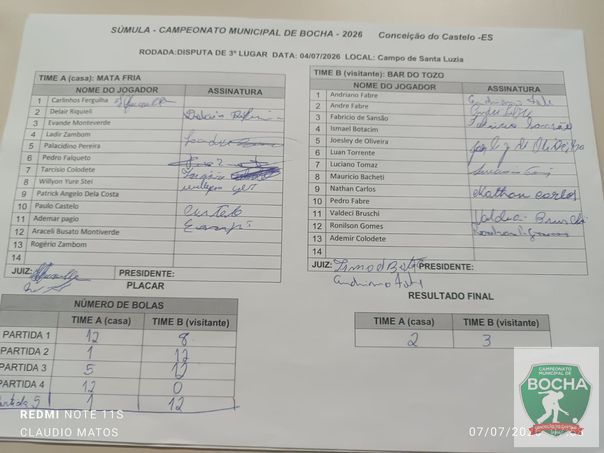 SÚMULA - CAMPEONATO MUNICIPAL DE BOCHA - 2026 Conceição do Castelo -ES
RODADA:DISPUTA DE 3º LUGAR DATA: 04/07/2026 LOCAL: Campo de Santa Luzia
TIME A (casa): MATA FRIA
NOME DO JOGADOR ASSINATURA
1 Carlinhos Fergulha
2 Delair Riquieli
3 Evande Monteverde
4 Ladir Zambom
5 Palacidino Pereira
6 Pedro Falqueto
7 Tarcísio Colodete
8 Willyon Yure Stei
9 Patrick Angelo Dela Costa
10 Paulo Castelo
11 Ademar pagio
12 Araceli Busato Montiverde
13 Rogério Zambom
14
JUIZ: PRESIDENTE:
TIME B (visitante): BAR DO TOZO
NOME DO JOGADOR ASSINATURA
1 Andriano Fabre
2 Andre Fabre
3 Fabricio de Sansão
4 Ismael Botacim
5 Joesley de Oliveira
6 Luan Torrente
7 Luciano Tomaz
8 Mauricio Bacheti
9 Nathan Carlos Nathan carlos
10 Pedro Fabre
11 Valdeci Bruschi
12 Ronilson Gomes
13 Ademir Colodete
14
JUIZ: PRESIDENTE:
PLACAR
NÚMERO DE BOLAS
TIME A (casa) TIME B (visitante)
PARTIDA 1 12 8
PARTIDA 2 1 12
PARTIDA 3 5 12
PARTIDA 4 12 0
Partida 5 1 12
RESULTADO FINAL
TIME A (casa) TIME B (visitante)
2 3
REDMI NOTE 11S
CLAUDIO MATOS
CAMPEONATO
MUNICIPAL DE
BOCHA
CONCEIÇÃO DO CASTELO